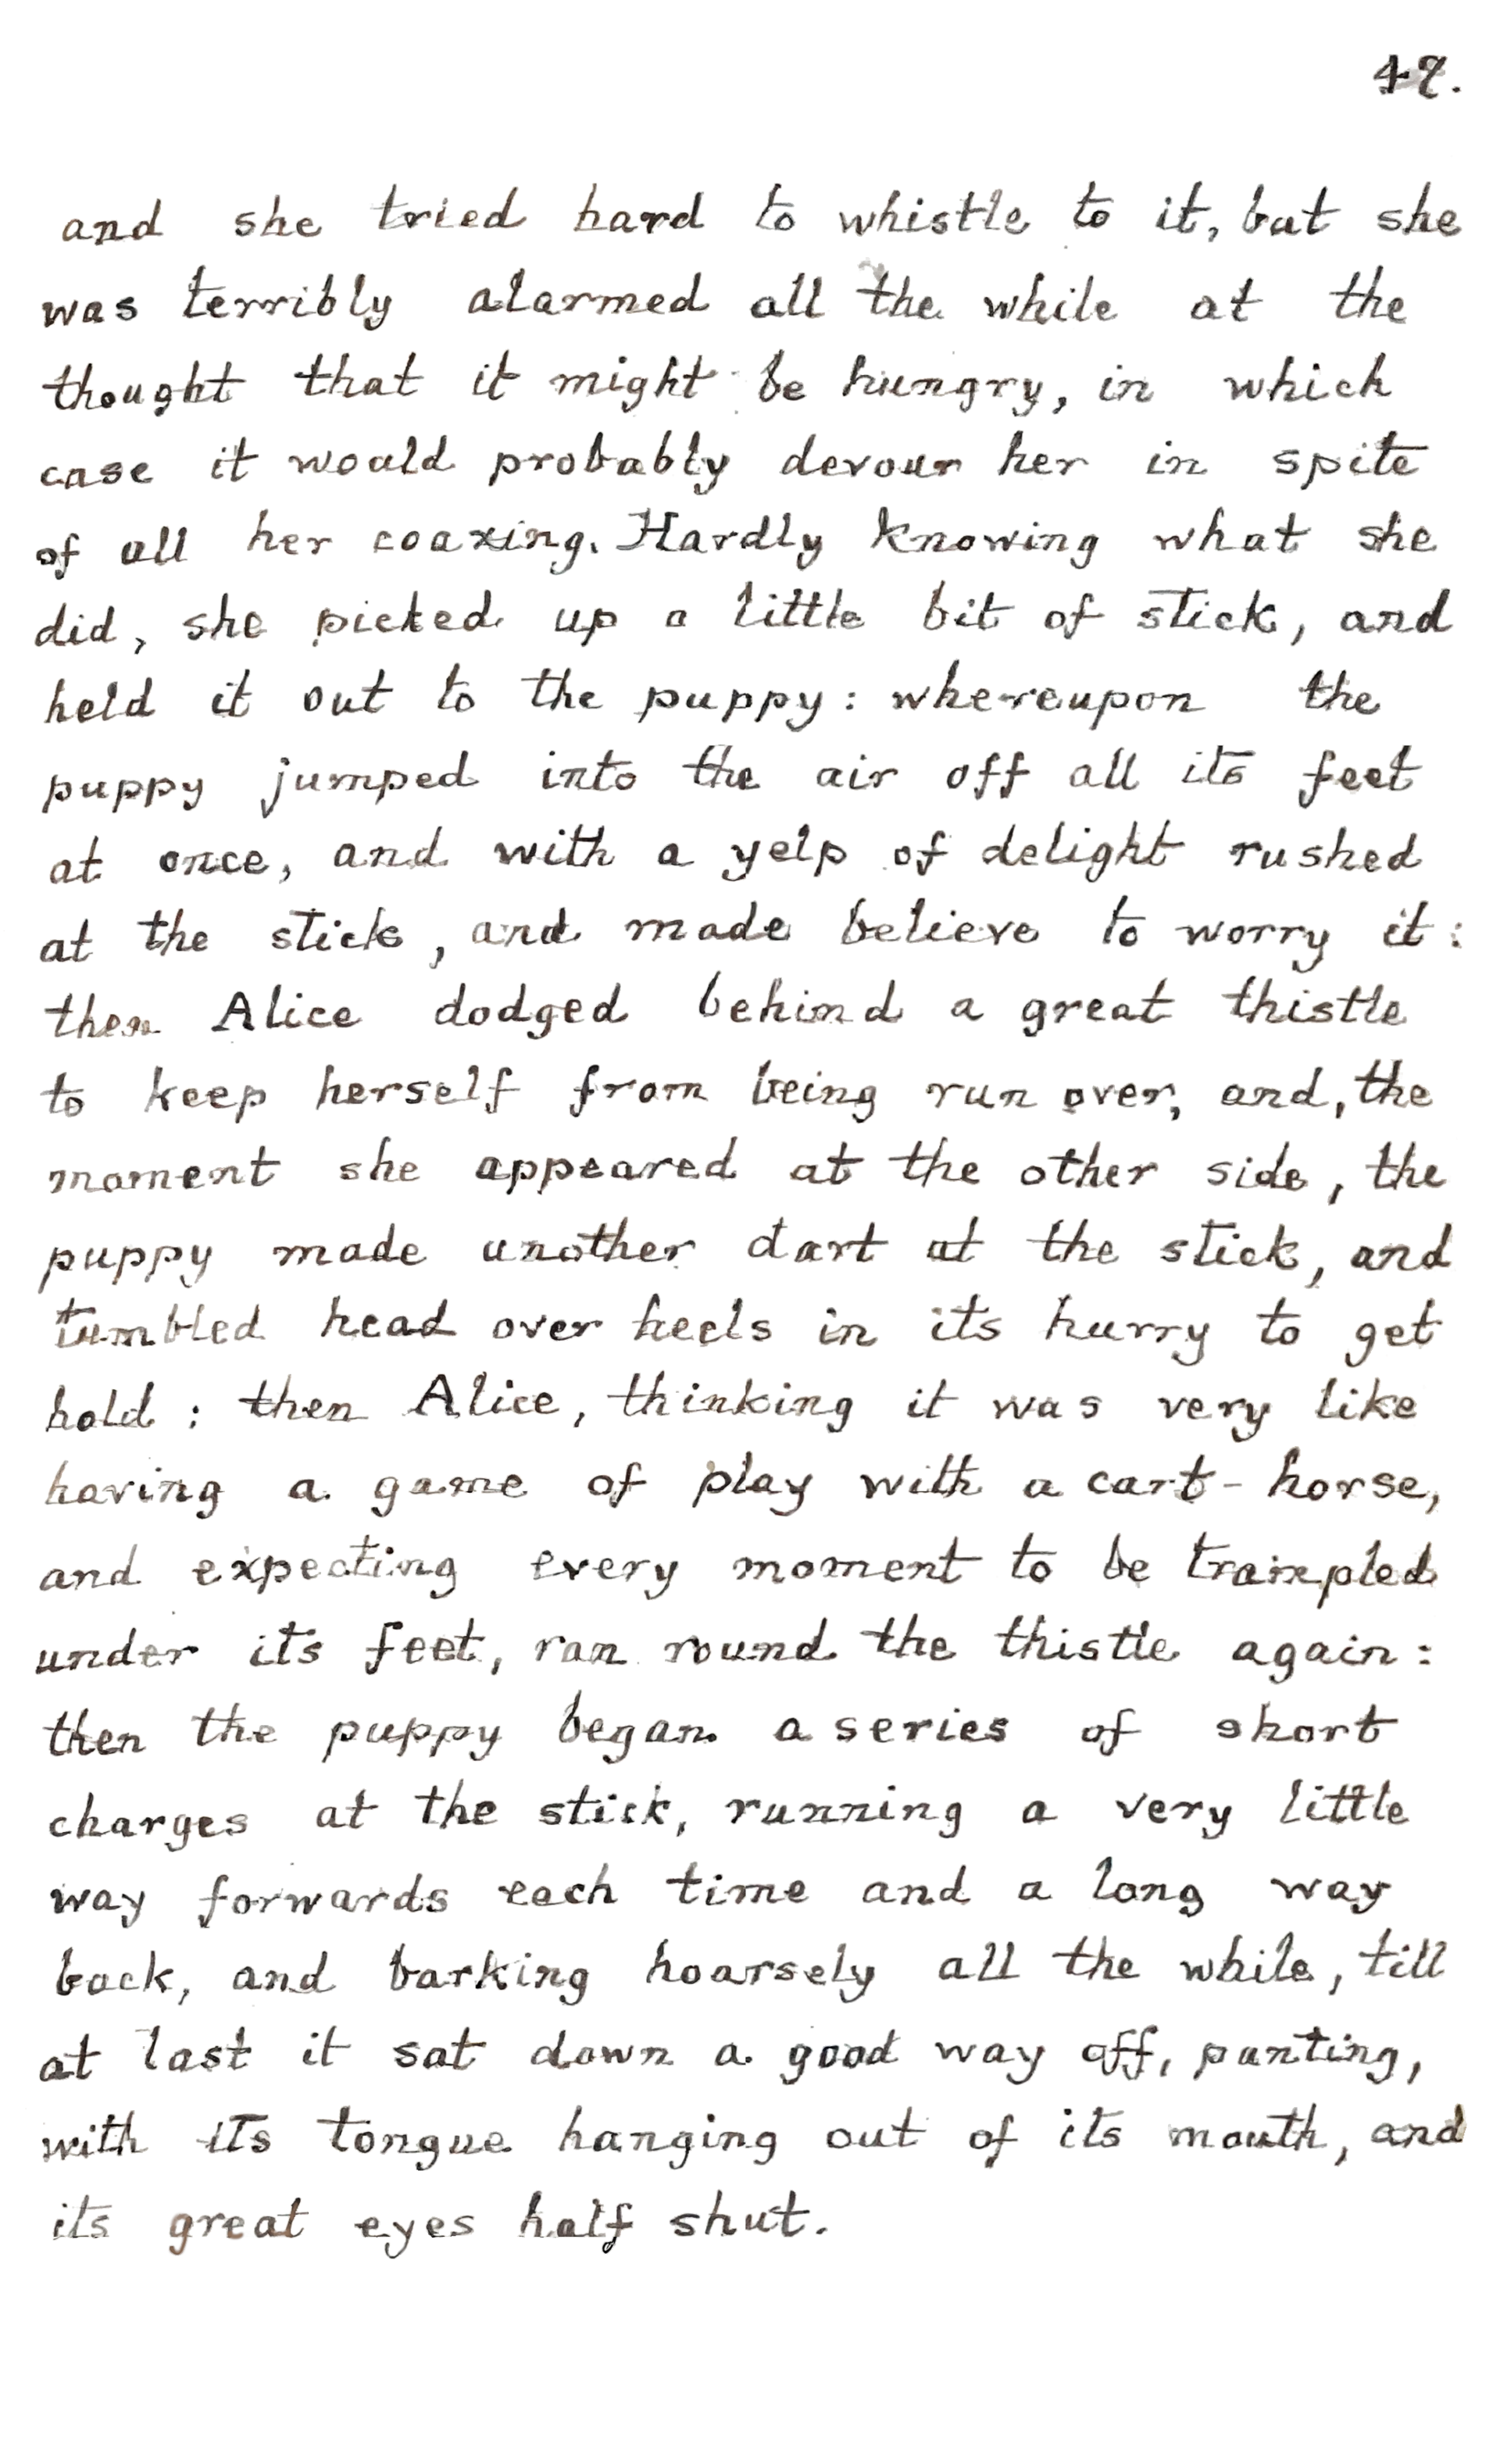 47.
and she tried hard to whistle to it, but she
was terribly alarmed all the while at the
thought that it might be hungry, in which
case it would probably devour her in spite
of all her coaxing. Hardly knowing what she
did, she picked up a little bit of stick, and
held it out to the puppy: whereupon the
puppy jumped into the air off all its feet
at once, and with a yelp of delight rushed
at the stick, and made believe to worry it:
then Alice dodged behind a great thistle
to keep herself from being run over, and, the
moment she appeared at the other side, the
puppy made another dart at the stick, and
tumbled head over heels in its hurry to get
hold: then Alice, thinking it was very like
having a game of play with a cart-horse,
and expecting every moment to be trampled
under its feet, ran round the thistle again:
then the puppy began a series of short
charges at the stick, running a very little
way forwards each time and a long way
back, and barking hoarsely all the while, till
at last it sat down a good way off, panting,
with its tongue hanging out of its mouth, and
its great eyes half shut.